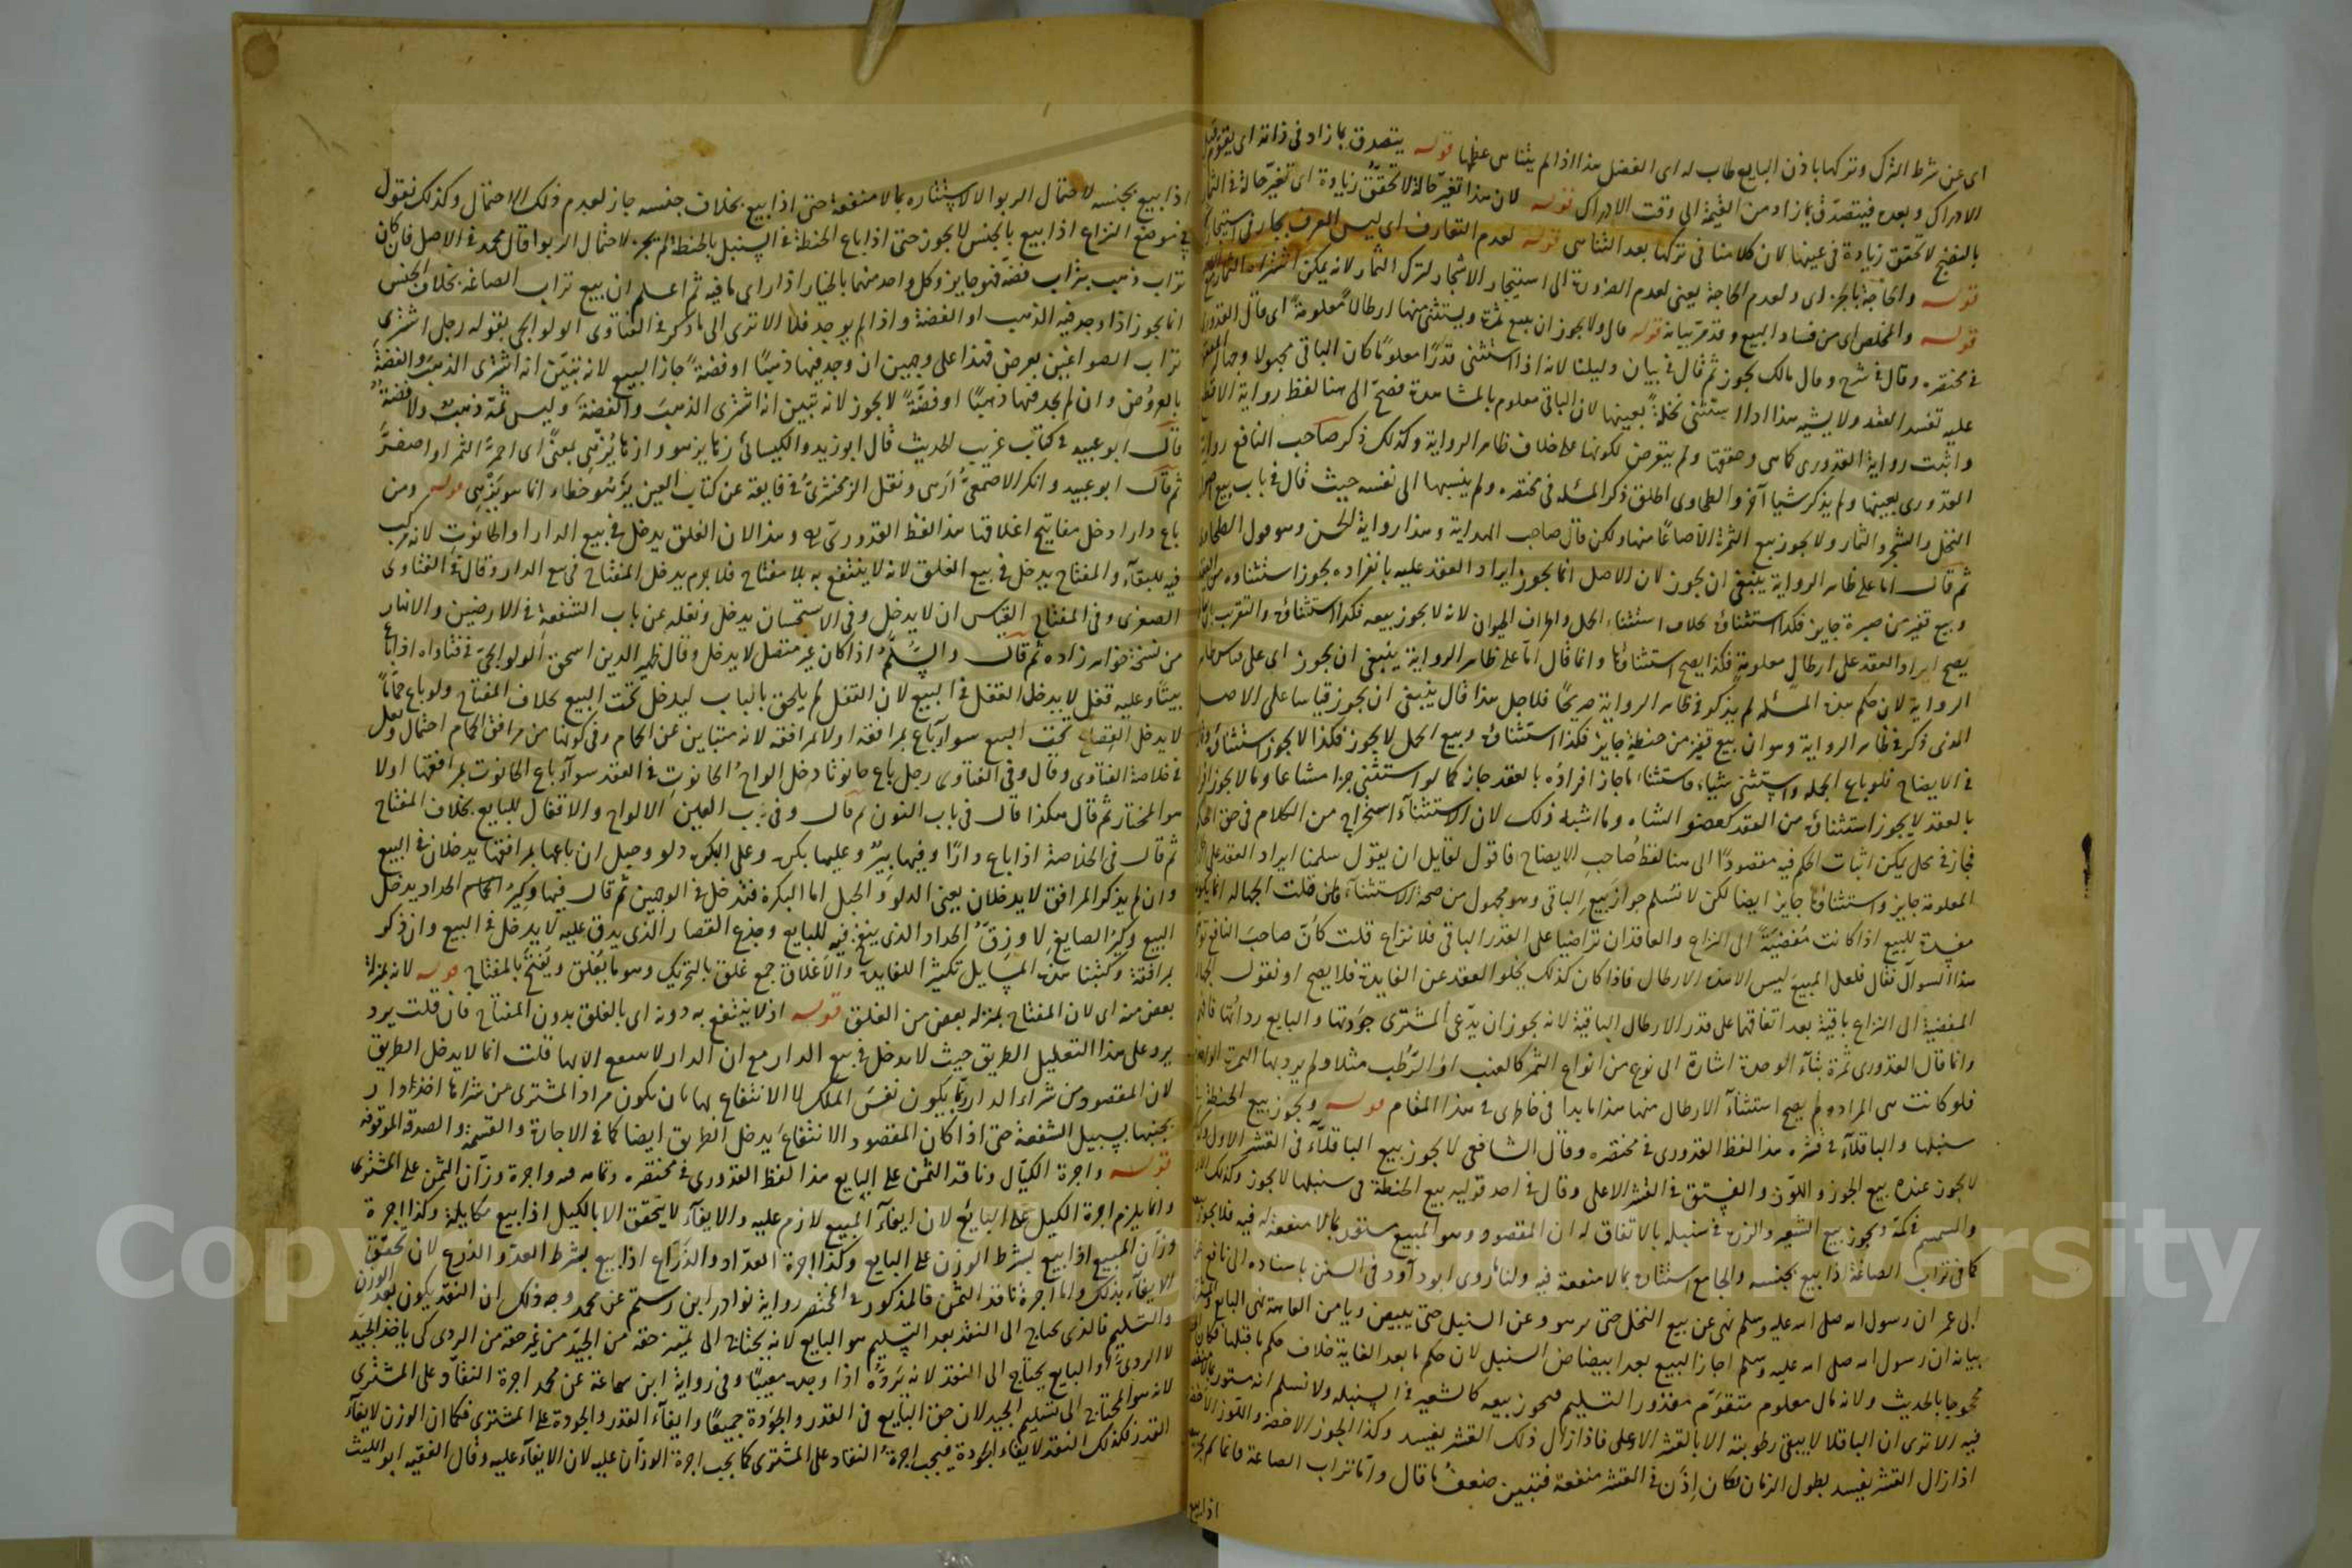 اى عن شرط الترك وتركها باذن البايع طاب له اى الفضل هذا اذا لم يتناه عظمها قوله يتصدق بما زاد فى ذاته اى يقوم قبل
الادراك وبعده فيتصدق بما زاد من القيمة الى وقت الادراك قوله لان هذا تغير حالة لا تحقق زيادة اى تغير حالة فى الثمار
بالنضج لا تحقق زيادة فى عينها لان كلامنا فى تركها بعد التناهى قوله لعدم التعارف اى ليس العرف بجار فى استيجار
قوله والحاجة بالجر اى ولعدم الحاجة يعنى لعدم الضرورة الى استيجار الاشجار لترك الثمار لانه يمكن اشتراء الثمار مع
قوله والمخلص اى من فساد البيع وقد مر بيانه قوله قال ولا يجوز ان يبيع ثمرة ويستثنى منها ارطالا معلومة اى قال القدورى
فى مختصره وقال فى شرحه وقال مالك يجوز ثم قال فى بيان دليلنا لانه اذا استثنى قدرا معلوما كان الباقى مجهولا وجهالة المعقود
عليه تفسد العقد ولا يشبه هذا اذا استثنى نخلة بعينها لان الباقى معلوم بالمشاهدة فصح الى هنا لفظ رواية الاقطع
واثبت رواية القدورى كما هى وحققها ولم يتعرض لكونها على خلاف ظاهر الرواية وكذلك ذكر صاحب النافع رواية
القدورى بعينها ولم يذكر شيا آخر والطحاوى اطلق ذكر المسئله فى مختصره ولم ينسبها الى نفسه حيث قال فى باب بيع اصول
النخل والشجر والثمار ولا يجوز بيع الثمرة الا صاعا منها ولكن قال صاحب الهداية وهذا رواية الحسن وهو قول الطحاوى
ثم قال اما على ظاهر الرواية ينبغى ان يجوز لان الاصل انما يجوز ايراد العقد عليه بانفراده يجوز استثناؤه من العقد
وبيع قفيز من صبرة جايز فكذا استثناؤه بخلاف استثناء الحمل واطراف الحيوان لانه لا يجوز بيعه فكذا استثناؤه والتقريب
يصح ايراد العقد على ارطال معلومة فكذا يصح استثناؤها وانما قال اما على ظاهر الرواية ينبغى ان يجوز اى على قياس ظاهر
الرواية لان حكم هذه المسئله لم يذكر فى ظاهر الرواية صريحا فلاجل هذا قال ينبغى ان يجوز قياسا على الاصل
الذى ذكر فى ظاهر الرواية وهو ان بيع قفيز من حنطة جايز فكذا استثناؤه وبيع الحمل لا يجوز فكذا لا يجوز استثناؤه
فى الايضاح فلو باع الجملة واستثنى شيا فاستثناء ما جاز افراده بالعقد جاز كما لو استثنى جزا مشاعا وما لا يجوز افراده
بالعقد لا يجوز استثناؤه من العقد كعضو الشاه وما اشبه ذلك لان الاستثناء استخراج من الكلام فى حق الحكم
فجاز فى محل يمكن اثبات الحكم فيه مقصودا الى هنا لفظ صاحب الايضاح فاقول لقايل ان يقول سلمنا ايراد العقد على
المعلومة جايز واستثناؤها جايز ايضا لكن لا نسلم جواز بيع الباقى وهو مجهول من صحة الاستثناء فان قلت الجهالة انما يكون
مفسدة للبيع اذا كانت مفضية الى النزاع والعاقدان تراضيا على القدر الباقى فلا نزاع قلت كان صاحب النافع
هذا السوال فقال فلعل المبيع ليس الا هذه الارطال فاذا كان كذلك يخلوا العقد عن الفايدة فلا يصح او نقول
المفضية الى النزاع باقية بعد اتفاقهما على قدر الارطال الباقية لانه يجوز ان يدعى المشترى جودتها والبايع رداءتها
وانما قال القدورى ثمرة بتاء الوحدة اشارة الى نوع من انواع الثمر كالعنب او الرطب مثلا ولم يرد بها الثمرة الواحدة
فلو كانت هى المراده لم يصح استثناء الارطال منها هذا ما بدا فى خاطرى فى هذا المقام قوله ويجوز بيع الحنطة فى
سنبلها والباقلاء فى قشره هذا لفظ القدورى فى مختصره وقال الشافعى لا يجوز بيع الباقلاء فى القشر الاول
لا يجوز عنده بيع الجوز واللوز والفستق فى القشر الاعلى وقال فى احد قوليه بيع الحنطة فى سنبلها لا يجوز وكذلك
والسمسم فى كمه ويجوز بيع الشعير والذرة فى سنبله بالاتفاق له ان المقصود وهو المبيع مستور بما لا منفعة له فيه فلا يجوز
كما فى تراب الصاغة اذا بيع بجنسه والجامع استتاره بما لا منفعة فيه ولنا ما روى ابو داود فى السنن باسناده الى نافع عن
ابن عمر ان رسول الله صلى الله عليه وسلم نهى عن بيع النخل حتى يزهو وعن السنبل حتى يبيض ويامن العاهة نهى البايع والمشترى
بيانه ان رسول الله صلى الله عليه وسلم اجاز البيع بعد ابيضاض السنبل لان حكم ما بعد الغاية خلاف حكم ما قبلها فكان
محجوجا بالحديث ولانه مال معلوم متقوم مقدور التسليم فيجوز بيعه كالشعير فى السنبله ولا نسلم انه مستور بما لا منفعة
فيه الا ترى ان الباقلا لا يبقى رطوبته الا بالقشر الاعلى فاذا زال ذلك القشر يفسد وكذا الجوز الاخضر واللوز الاخضر
اذا زال القشر يفسد بطول الزمان لكان اذن فى القشر منفعة فتبين ضعف ما قال واما تراب الصاغة فانما لم يجز
اذا بيع
اذا بيع بجنسه لاحتمال الربوا لا لاستتاره بما لا منفعة حتى اذا بيع بخلاف جنسه جاز لعدم ذلك الاحتمال وكذلك نقول
فى موضع النزاع اذا بيع بالجنس لا يجوز حتى اذا باع الحنطة فى السنبل بالحنطة لم يجز لاحتمال الربوا قال محمد فى الاصل فان كان
تراب ذهب بتراب فضة فهو جايز وكل واحد منهما بالخيار اذا راى ما فيه ثم اعلم ان بيع تراب الصاغة بخلاف الجنس
انما يجوز اذا وجد فيه الذهب او الفضة واذا لم يوجد فلا الا ترى الى ما ذكر فى الفتاوى الولوالجى بقوله رجل اشترى
تراب الصواغين بعرض فهذا على وجهين ان وجد فيها ذهبا او فضة جاز البيع لانه تبين انه اشترى الذهب والفضة
بالعروض وان لم يجد فيها ذهبا او فضة لا يجوز لانه تبين انه اشترى الذهب والفضة وليس ثمة ذهب ولا فضة
قال ابو عبيد فى كتاب غريب الحديث قال ابو زيد والكسائى زها يزهو وازها يزهى بمعنى اى احمر الثمر او اصفر
ثم قال ابو عبيد وانكر الاصمعى ازهى ونقل الزمخشرى فى فايقه عن كتاب العين يزهو خطاء انما هو يزهى قوله ومن
باع دارا دخل مفاتيح اغلاقها هذا لفظ القدورى وهذا لان الغلق يدخل فى بيع الدار او الحانوت لانه مركب
فيه للبقاء والمفتاح يدخل فى بيع الغلق لانه لا ينتفع به بلا مفتاح فلا جرم يدخل المفتاح فى بيع الدار وقال فى الفتاوى
الصغرى وفى المفتاح القياس ان لا يدخل وفى الاستحسان يدخل ونقله عن باب الشفعة فى الارضين والانهار
من نسخة خواهر زاده ثم قال والسلم اذا كان غير متصل لا يدخل وقال ظهير الدين اسحق الولوالجى فى فتاواه اذا باع
بيتا وعليه قفل لا يدخل القفل فى البيع لان القفل لم يلحق بالباب ليدخل تحت البيع بخلاف المفتاح ولو باع حماما
لا يدخل القصاع تحت البيع سواء باع بمرافقه اولا بمرافقه لانه متباين عن الحمام وفى كونها من مرافق الحمام احتمال وقال
فى خلاصة الفتاوى وقال وفى الفتاوى رجل باع حانوتا دخل الواح الحانوت فى العقد سواء باع الحانوت بمرافقها اولا
هو المختار ثم قال هكذا قال فى باب النون ثم قال وفى باب العين الالواح والاقفال للبايع بخلاف المفتاح
ثم قال فى الخلاصة اذا باع دارا وفيها بير وعليها بكرة وعلى البكرة دلو وحبل ان باعها بمرافقها يدخلان فى البيع
وان لم يذكر المرافق لا يدخلان يعنى الدلو والحبل اما البكرة فتدخل فى الوجهين ثم قال فيها وكير الحداد يدخل
البيع وكير الصايغ لا وزق الحداد الذى ينفخ فيه للبايع وجذع القصار الذى يدق عليه لا يدخل فى البيع وان ذكر
بمرافقة وكتبنا هذه المسايل تكثيرا للفايدة والاغلاق جمع غلق بالتحريك وهو ما يغلق ويفتح بالمفتاح قوله لانه بمنزلة
بعض منه اى لان المفتاح بمنزله بعض من الغلق قوله اذ لا ينتفع به دونه اى بالغلق بدون المفتاح فان قلت يرد
يرد على هذا التعليل الطريق حيث لا يدخل فى بيع الدار مع ان الدار لا ينتفع الا بها قلت انما لا يدخل الطريق
لان المقصود من شراء الدار ربما يكون نفس الملك لا الانتفاع بها بان يكون مراد المشترى من شرائها اخذ دار
بجنبها بسبيل الشفعة حتى اذا كان المقصود الانتفاع يدخل الطريق ايضا كما فى الاجارة والقسمة والصدقه الموقوفه
قوله واجرة الكيال وناقد الثمن على البايع هذا لفظ القدورى فى مختصره وتمامه فيه واجرة وزان الثمن على المشترى
وانما يلزم اجرة الكيل على البائع لان ايفاء المبيع لازم عليه والايفاء لا يتحقق الا بالكيل اذا بيع مكايلة وكذا اجرة
وزان المبيع اذا بيع بشرط الوزن على البايع وكذا اجرة العداد والذراع اذا بيع بشرط العد والذرع لان تحقق
الايفاء بذلك واما اجرة ناقد الثمن فالمذكور فى المختصر رواية نوادر ابن رستم عن محمد وجه ذلك ان النقد يكون بعد الوزن
والتسليم فالذى يحتاج الى النقد بعد التسليم هو البايع لانه يحتاج الى تمييز حقه من الجيد من غير حقه من الردى كى ياخذ الجيد
لا الردى او البايع يحتاج الى النقد لانه يرده اذا وجده معيبا وفى رواية ابن سماعة عن محمد اجرة النقاد على المشترى
لانه هو المحتاج الى تسليم الجيد لان حق البايع فى القدر والجودة جميعا وايفاء القدر والجودة على المشترى فكما ان الوزن لايفاء
القدر فكذلك النقد لايفاء الجودة فيجب اجرة النقاد على المشترى كما يجب اجرة الوزان عليه لان الايفاء عليه وقال الفقيه ابو الليث